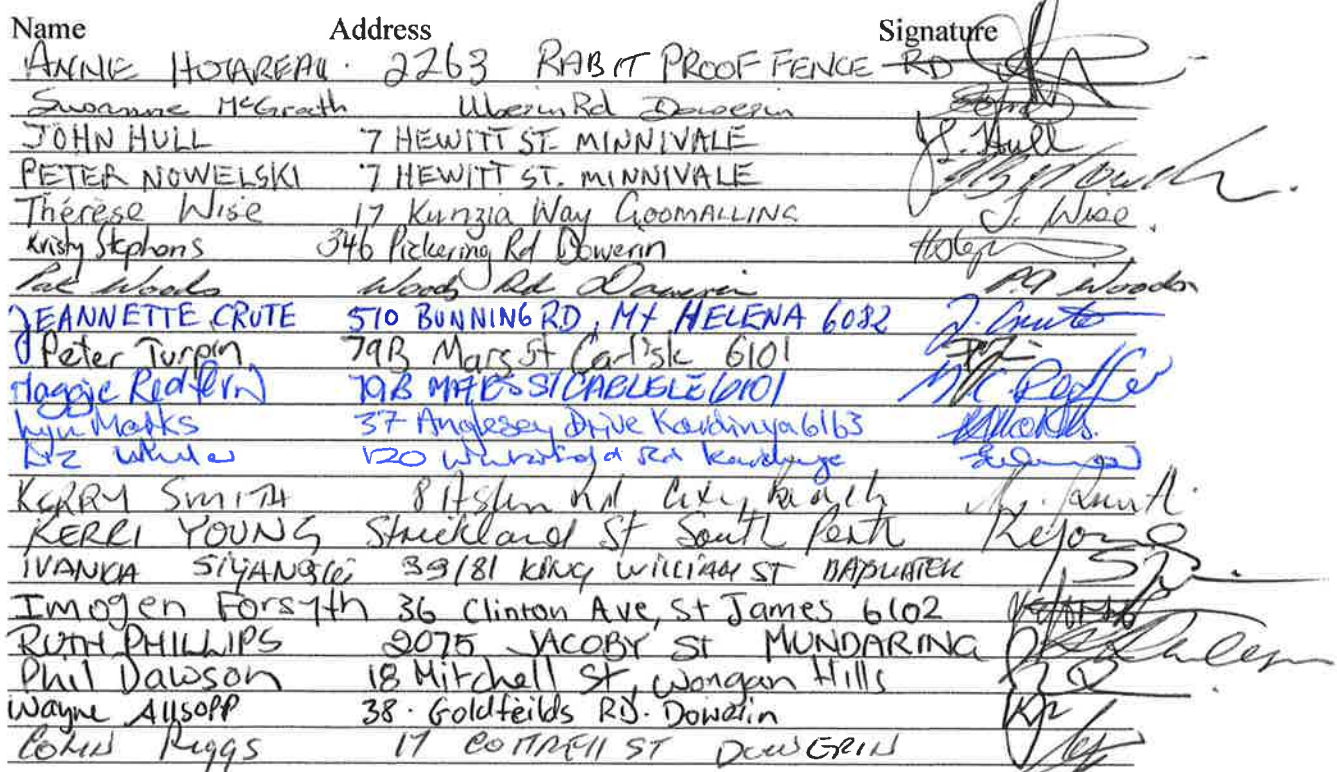 Name Address Signature
ANNIE 2263 RABIT PROOF FENCE RD
Suzanne McGrath Uberin Rd Dowerin
JOHN HULL 7 HEWITT ST. MINNIVALE J. Hull
PETER NOWELSKI 7 HEWITT ST. MINNIVALE
Thérèse Wise 17 Kunzia Way GOOMALLING J. Wise.
Kristy Stephens 346 Pickering Rd Dowerin
Pat Woods Woods Rd Dowerin P.A Woods
JEANNETTE CRUTE 510 BUNNING RD, Mt HELENA 6082 J. Crute
Peter Turpin 79B Mars St Carlisle 6101
Maggie Redfern 79B MARS ST CARLISLE 6101
Lyn Marks 37 Anglesey Drive Kardinya 6163
Liz 120 Rd
KERRY SMITH 8 Rd City Beach
KERRI YOUNG Strickland St South Perth
IVANKA 39/81 KING WILLIAM ST
Imogen Forsyth 36 Clinton Ave, St James 6102
RUTH PHILLIPS 2075 JACOBY ST MUNDARING
Phil Dawson 18 Mitchell St, Wongan Hills
Wayne Allsopp 38. Goldfeilds RD. Dowerin
COLIN Riggs 17 COTTRELL ST DOWERIN